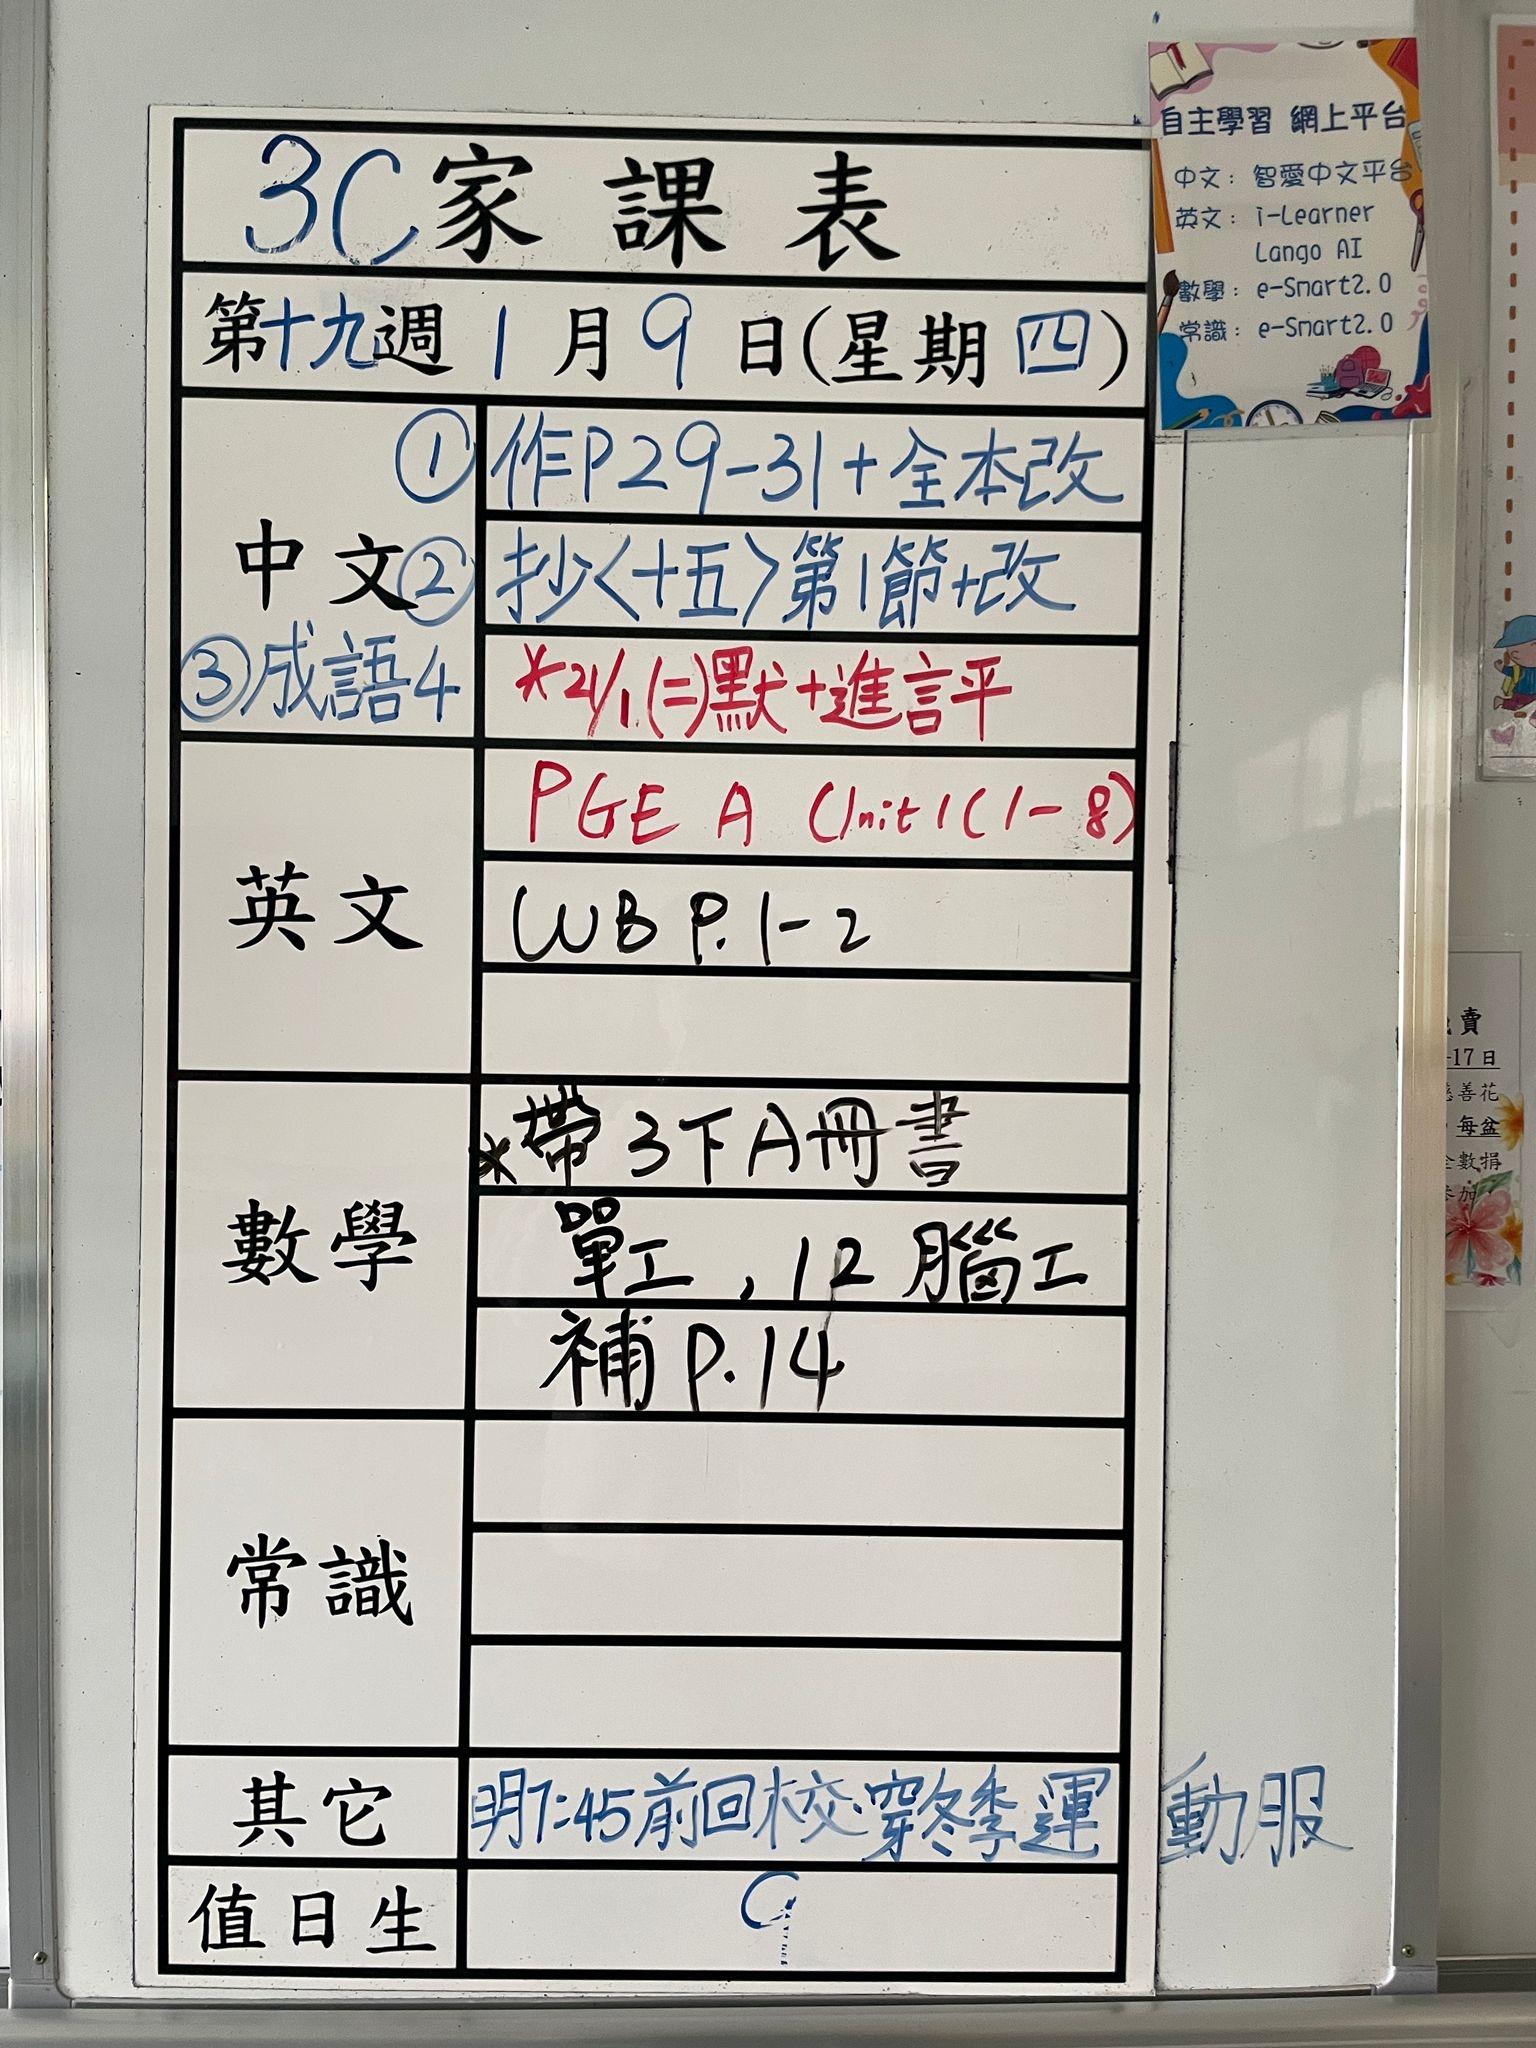 3C家課表
第十九週 1月9日(星期四)
中文
① 作P29-31+全本改
② 抄〈十五〉第1節+改
③成語4
*21/1(二)默+進評
英文
PGE A Unit 1 (1-8)
WB P.1-2
數學
*帶3下A冊書
單工, 12腦工
補 P.14
常識
其它
明7:45前回校.穿冬季運動服
值日生
9
自主學習 網上平台
中文: 智愛中文平台
英文: i-Learner
Lango AI
數學: e-Smart2.0
常識: e-Smart2.0
賣
17日
善花
每盆
數捐
參加